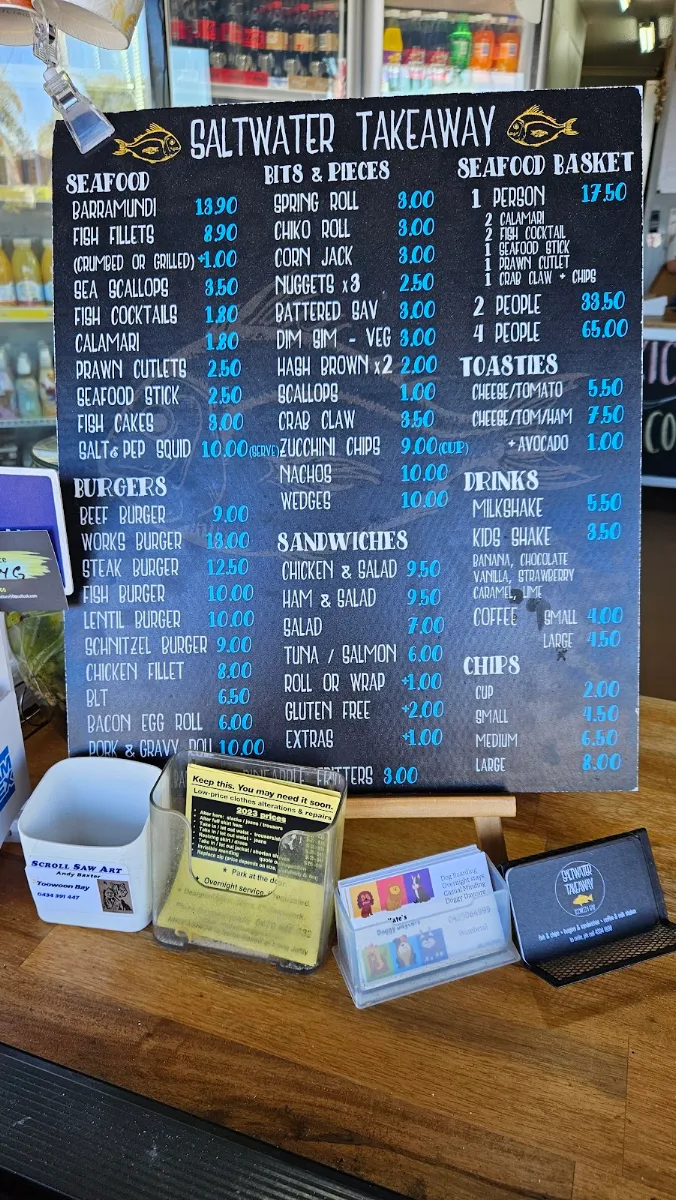 SALTWATER TAKEAWAY
SEAFOOD
BARRAMUNDI 13.90
FISH FILLETS 8.90
(CRUMBED OR GRILLED) +1.00
SEA SCALLOPS 3.50
FISH COCKTAILS 1.80
CALAMARI 1.80
PRAWN CUTLETS 2.50
SEAFOOD STICK 2.50
FISH CAKES 3.00
SALT & PEP SQUID 10.00 (SERVE)
BURGERS
BEEF BURGER 9.00
WORKS BURGER 13.00
STEAK BURGER 12.50
FISH BURGER 10.00
LENTIL BURGER 10.00
SCHNITZEL BURGER 9.00
CHICKEN FILLET 8.00
BLT 6.50
BACON EGG ROLL 6.00
PORK & GRAVY ROLL 10.00
BITS & PIECES
SPRING ROLL 3.00
CHIKO ROLL 3.00
CORN JACK 3.00
NUGGETS x3 2.50
BATTERED SAV 3.00
DIM SIM - VEG 3.00
HASH BROWN x2 2.00
SCALLOPS 1.00
CRAB CLAW 3.50
ZUCCHINI CHIPS 9.00 (CUP)
NACHOS 10.00
WEDGES 10.00
SANDWICHES
CHICKEN & SALAD 9.50
HAM & SALAD 9.50
SALAD 7.00
TUNA / SALMON 6.00
ROLL OR WRAP +1.00
GLUTEN FREE +2.00
EXTRAS +1.00
FRITTERS 3.00
SEAFOOD BASKET
1 PERSON 17.50
2 CALAMARI
2 FISH COCKTAIL
1 SEAFOOD STICK
1 PRAWN CUTLET
1 CRAB CLAW + CHIPS
2 PEOPLE 33.50
4 PEOPLE 65.00
TOASTIES
CHEESE/TOMATO 5.50
CHEESE/TOM/HAM 7.50
+ AVOCADO 1.00
DRINKS
MILKSHAKE 5.50
KIDS SHAKE 3.50
BANANA, CHOCOLATE
VANILLA, STRAWBERRY
CARAMEL, LIME
COFFEE SMALL 4.00
LARGE 4.50
CHIPS
CUP 2.00
SMALL 4.50
MEDIUM 6.50
LARGE 8.00
SCROLL SAW ART
Andy Baxter
Toowoon Bay
0434 391 447
Keep this. You may need it soon.
Low-price clothes alterations & repairs
2023 prices
Park at the door
Overnight service
Doggy Daycare
SALTWATER
TAKEAWAY